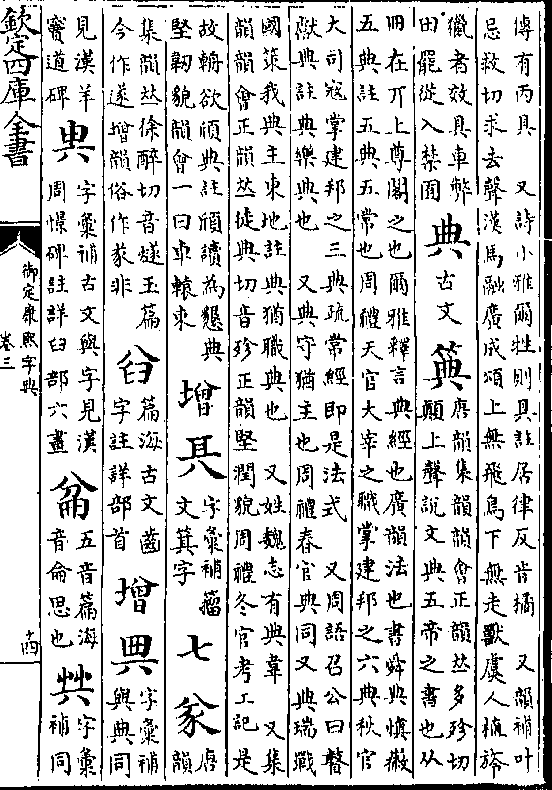 傳有丙具 又詩小雅爾牲則具註居律反音橘 又韻補叶
忌救切求去聲漢馬融廣成頌上無飛鳥下無走獸虞人植旍
獵者效具車弊
田罷從入禁囿
典 古文
唐韻集韻韻會正韻𠀤多殄切
顛上聲說文典五帝之書也从
冊在丌上尊閣之也爾雅釋言典經也廣韻法也書舜典慎徽
五典註五典五常也周禮天官大宰之職掌建邦之六典秋官
大司寇掌建邦之三典疏常經即是法式 又周語召公曰瞽
獻典註典樂典也 又典守猶主也周禮春官典同又典瑞戰
國策我典主東地註典猶職典也 又姓魏志有典韋 又集
韻韻會正韻𠀤徒典切音殄正韻堅潤貌周禮冬官考工記是
故輈欲頎典註頎讀為懇典
堅韌貌韻會一曰車轅束
增
字彙補籀
文箕字
七 㒸
唐
韻
集韻𠀤徐醉切音燧玉篇
今作遂增韻俗作㒸非
篇海古文齒
字註詳部首
增
字彙補
與典同
見漢羊
竇道碑
字彙補古文與字見漢
周憬碑註詳臼部六畫
五音篇海
音侖思也
字彙
補同
欽定四庫全書
御定康熙字典
卷三
十四